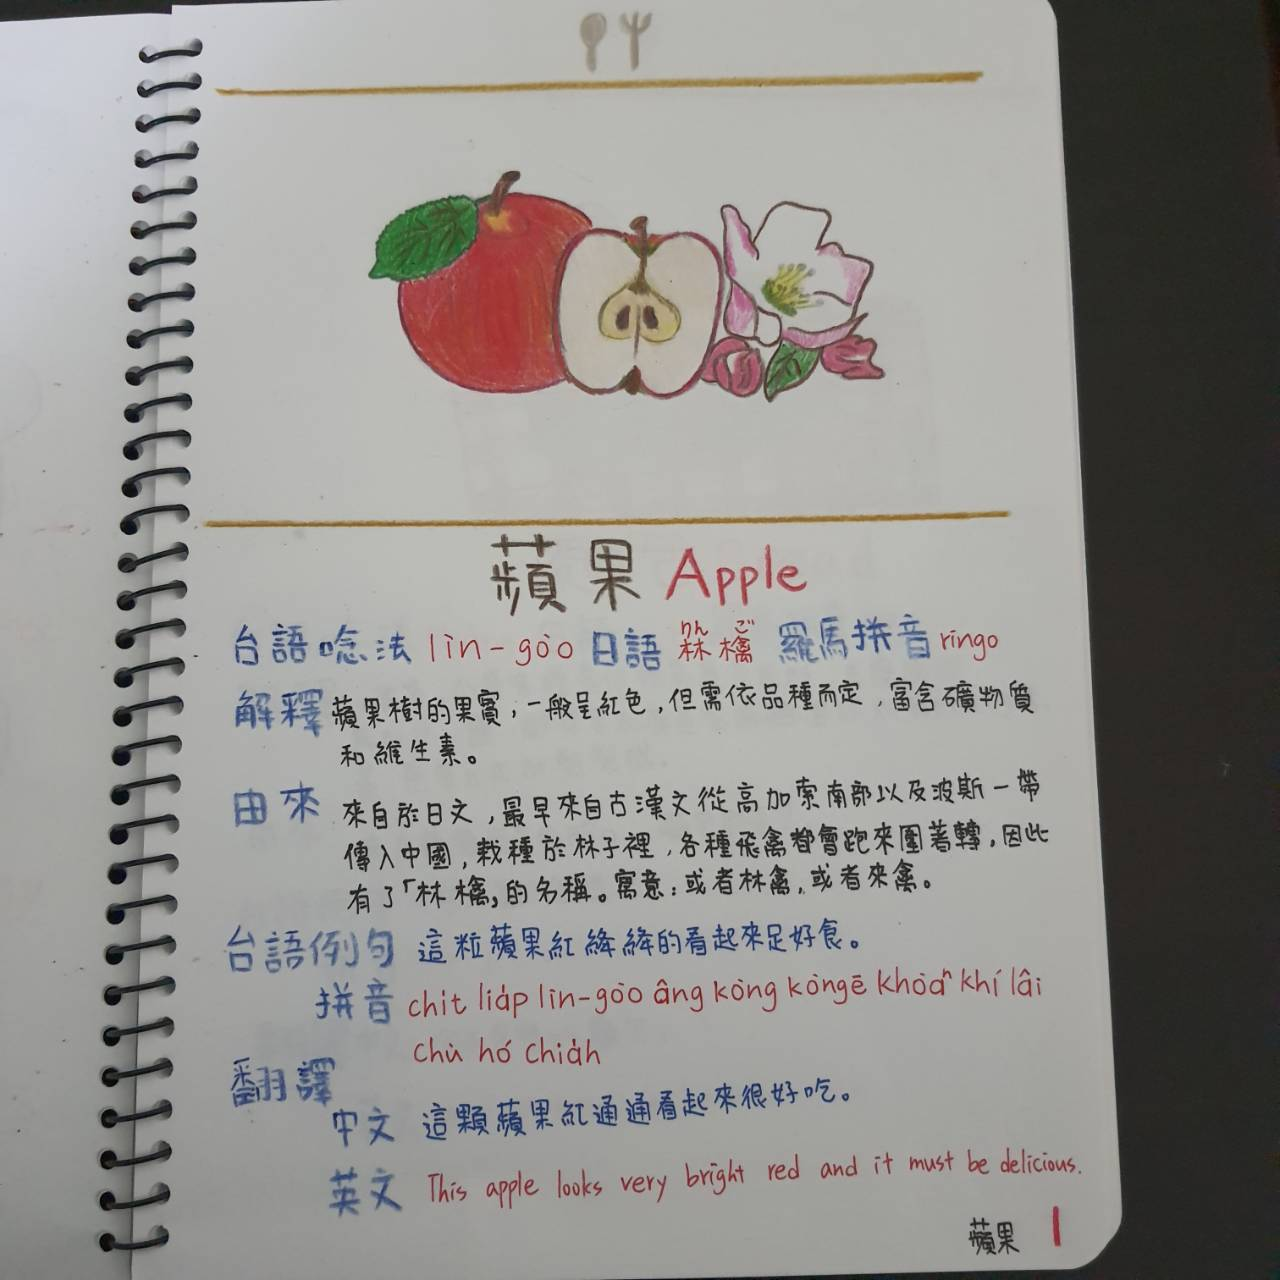 蘋果 Apple
台語唸法 lìn-gòo 日語 林檎 りんご 羅馬拼音 ringo
解釋 蘋果樹的果實，一般呈紅色，但需依品種而定，富含礦物質
和維生素。
由來 來自於日文，最早來自古漢文從高加索南部以及波斯一帶
傳入中國，栽種於林子裡，各種飛禽都會跑來圍著轉，因此
有了「林檎」的名稱。寓意：或者林禽，或者來禽。
台語例句 這粒蘋果紅絳絳的看起來足好食。
拼音 chit lia̍p lìn-gòo âng kòng kòngê khòaⁿ khí lâi
chù hó chia̍h
翻譯
中文 這顆蘋果紅通通看起來很好吃。
英文 This apple looks very bright red and it must be delicious.
蘋果 1